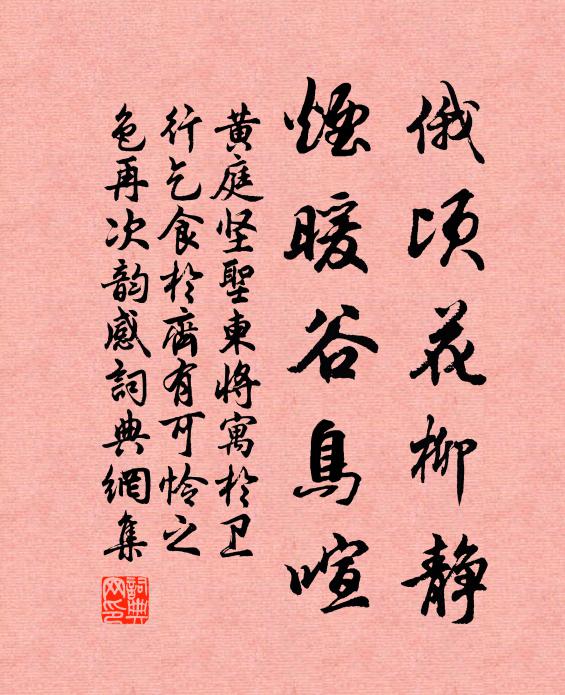 俄顷花柳静
煙暖谷鳥喧
黄庭坚聖東将寓於卫
行乞食於齊有可怜之
色再次韵感詞典網集
詞典网印